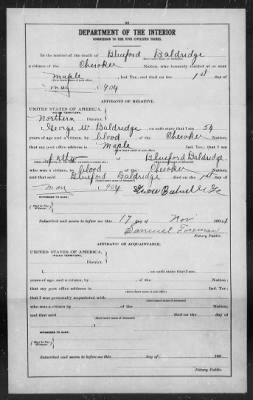 DEPARTMENT OF THE INTERIOR
COMMISSION TO THE FIVE CIVILIZED TRIBES.
In the matter of the death of Blueford Baldridge
a citizen of the Cherokee Nation, who formerly resided at or near
Maple, Ind. Ter., and died on the 1st day of
May, 1904
AFFIDAVIT OF RELATIVE.
UNITED STATES OF AMERICA,
INDIAN TERRITORY,
Northern District.
I, George W Baldridge on oath state that I am 54
years of age and a citizen, by blood of the Cherokee Nation;
that my post office address is Maple Ind. Ter.; that I am
Blueford Baldridge
who was a citizen, by blood of the Cherokee Nation;
and that said Blueford Baldridge died on the 1st day of
May, 1904
WITNESSES TO MARK:
Subscribed and sworn to before me this 17 day of Nov 190
Samuel Foreman
Notary Public.
AFFIDAVIT OF ACQUAINTANCE.
UNITED STATES OF AMERICA,
INDIAN TERRITORY,
District.
I, on oath state that I am
years of age, and a citizen, by of the Nation;
that my post office address is Ind. Ter.;
that I was personally acquainted with
who was a citizen, by of the Nation;
and that said died on the day of
WITNESSES TO MARK:
Subscribed and sworn to before me this day of 190
Notary Public.